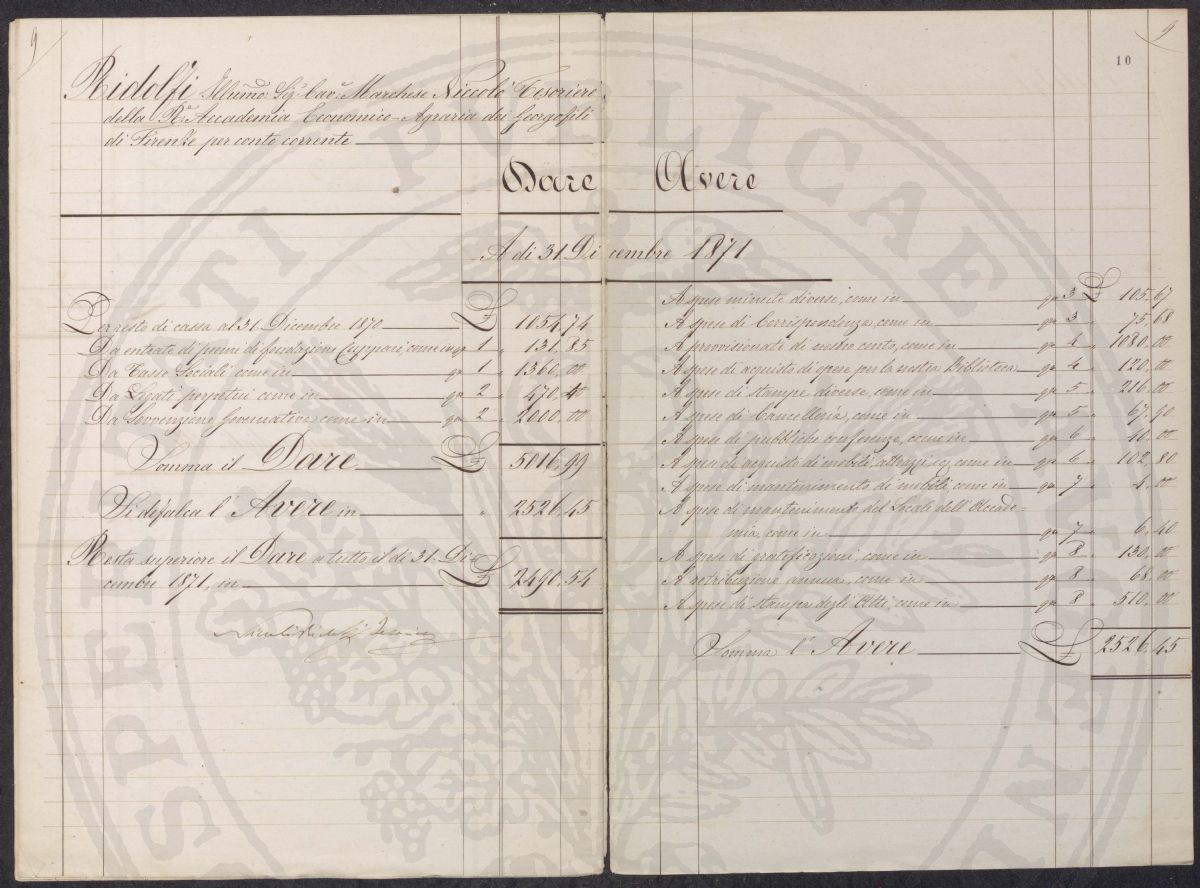 9
Ridolfi Illumo Sigr Cave Marchese Niccolò Tesoriere
della Re Accademia Economico-Agraria dei Georgofili
di Firenze per conto corrente
Dare
A di 31. Dicembre 1871
Per resto di cassa al 31. Dicembre 1870 £ 1054,74
Da entrate di premi di fondazione Cuppari, come in qo 1 " 131,85
Da Tasse Sociali come in qo 1 " 1360,00
Da Legati perpetui come in qo 2 " 470,40
Da Sovvenzione Governativa come in qo 2 " 2000,00
Somma il Dare £ 5016,99
Si defalca l'Avere in " 2526,45
Resta superiore il Dare a tutto il di 31. Di-
cembre 1871, in £ 2490,54
9
10
Avere
A spese minute diverse, come in qo 3 £ 105,67
A spese di Corrispondenza, come in qo 3 " 75,68
A provvisionati di nostro conto, come in qo 4 " 1080,00
A spese di acquisto di opere per la nostra Biblioteca qo 4 " 120,00
A spese di stampe diverse, come in qo 5 " 216,00
A spese di Cancelleria, come in qo 5 " 67,90
A spese di pubbliche conferenze, come in qo 6 " 40,00
A spese di acquisto di mobili, attrazzi, come in qo 6 " 102,80
A spese di mantenimento di mobili, come in qo 7 " 4,00
A spese di mantenimento del Locale dell'Accade-
mia, come in qo 7 " 6,40
A spese di gratificazioni, come in qo 8 " 130,00
A retribuzione annua, come in qo 8 " 68,00
A spese di stampa degli Atti, come in qo 8 " 510,00
Somma l'Avere £ 2526,45
PUBLICAE